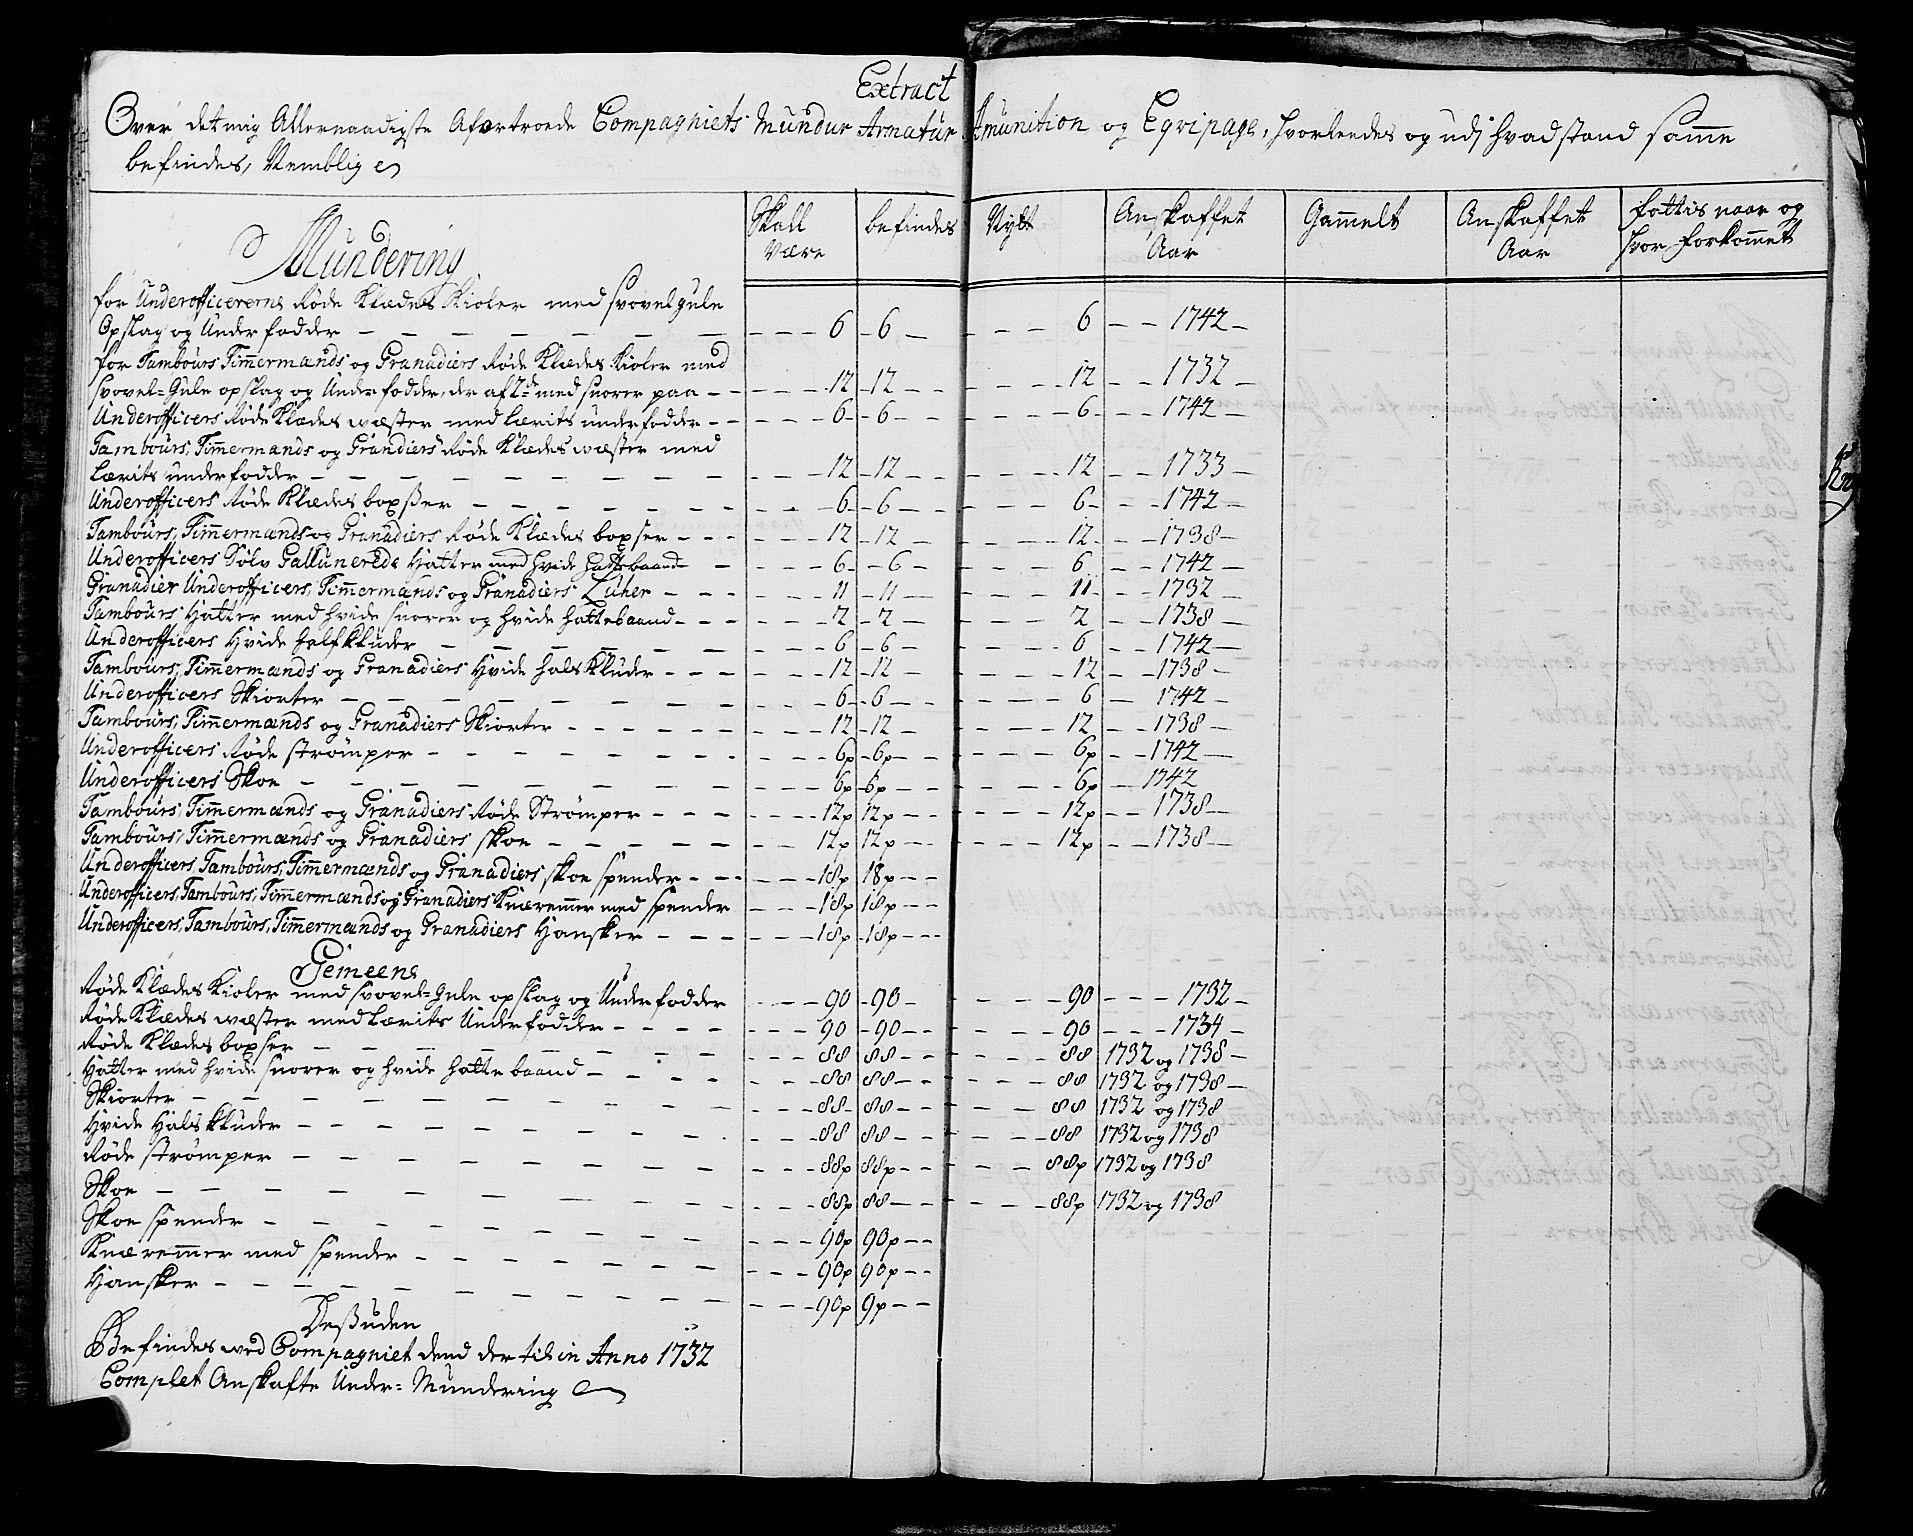 Extract
Over det mig Allernaadigste Afvertroede Compagniets Mundur Armatur Amunition og Eqvipage, hvorleedes og udj hvad stand samme
befindes, Nemblig
Mundering | Skall Være | befindes | Nytt | Anskaffet Aar | Gammelt | Anskaffet Aar | fattis naar og hvor forkommet
for Underofficererne Røde Klædes Kioler med svovel gule
Opslag og Under fodder — 6 — 6 — 6 — 1742
for Tambours, Timmermænds og Granadiers Røde Klædes Kioler med
svovel=Gule opslag og Under fodder, der af 2de med snorer paa — 12 — 12 — 12 — 1732
Underofficers Røde Klædes wæster med Lærits underfodder — 6 — 6 — 6 — 1742
Tambours, Timmermands og Granadiers Røde Klædes wæster med
Lærits underfodder — 12 — 12 — 12 — 1733
Underofficers Røde Klædes boxser — 6 — 6 — 6 — 1742
Tambours, Timmermænds og Granadiers Røde Klædes boxser — 12 — 12 — 12 — 1738
Underofficers Sølv Gallunerede Hatter med hvide hattebaand — 6 — 6 — 6 — 1742
Granadier Underofficers, Timmermænds og Granadiers Luher — 11 — 11 — 11 — 1732
Tambours Hatter med hvide snorer og hvide hattebaand — 2 — 2 — 2 — 1738
Underofficers Hvide halskluder — 6 — 6 — 6 — 1742
Tambours, Timmermænds og Granadiers Hvide halskluder — 12 — 12 — 12 — 1738
Underofficers Skiorter — 6 — 6 — 6 — 1742
Tambours, Timmermænds og Granadiers Skiorter — 12 — 12 — 12 — 1738
Underofficers Røde strømper — 6p — 6p — 6p — 1742
Underofficers Skoe — 6p — 6p — 6p — 1742
Tambours, Timmermænds og Granadiers Røde Strømper — 12p 12p — 12p — 1738
Tambours, Timmermænds og Granadiers skoe — 12p 12p — 12p — 1738
Underofficers, Tambours, Timmermænds og Granadiers skoe spender — 18p 18p
Underofficers, Tambours, Timmermænds og Granadiers Knæremmer med spender — 18p 18p
Underofficers, Tambours, Timmermænds og Granadiers Hansker — 18p — 18p
Gemeene
Røde Klædes Kioler med svovel=Gule opslag og Under fodder — 90 — 90 — 90 — 1732
Røde Klædes wæster med Lærits Underfodder — 90 — 90 — 90 — 1734
Røde Klædes boxser — 88 88 — 88 1732 og 1738
Hatter med hvide snorer og hvide hatte baand — 88 88 — 88 1732 og 1738
Skiorter — 88 88 — 88 1732 og 1738
Hvide Hals kluder — 88 88 — 88 1732 og 1738
Røde strømper — 88p 88p — 88p 1732 og 1738
Skoe — 88p 88 — 88p 1732 og 1738
Skoe spender — 90p 90p
Knæremmer med spender — 90p 90p
Hansker — 90p 9p
Desuden
Befindes wed Compagniet dend der til in Anno 1732
Complet Anskafte Under=Mundering